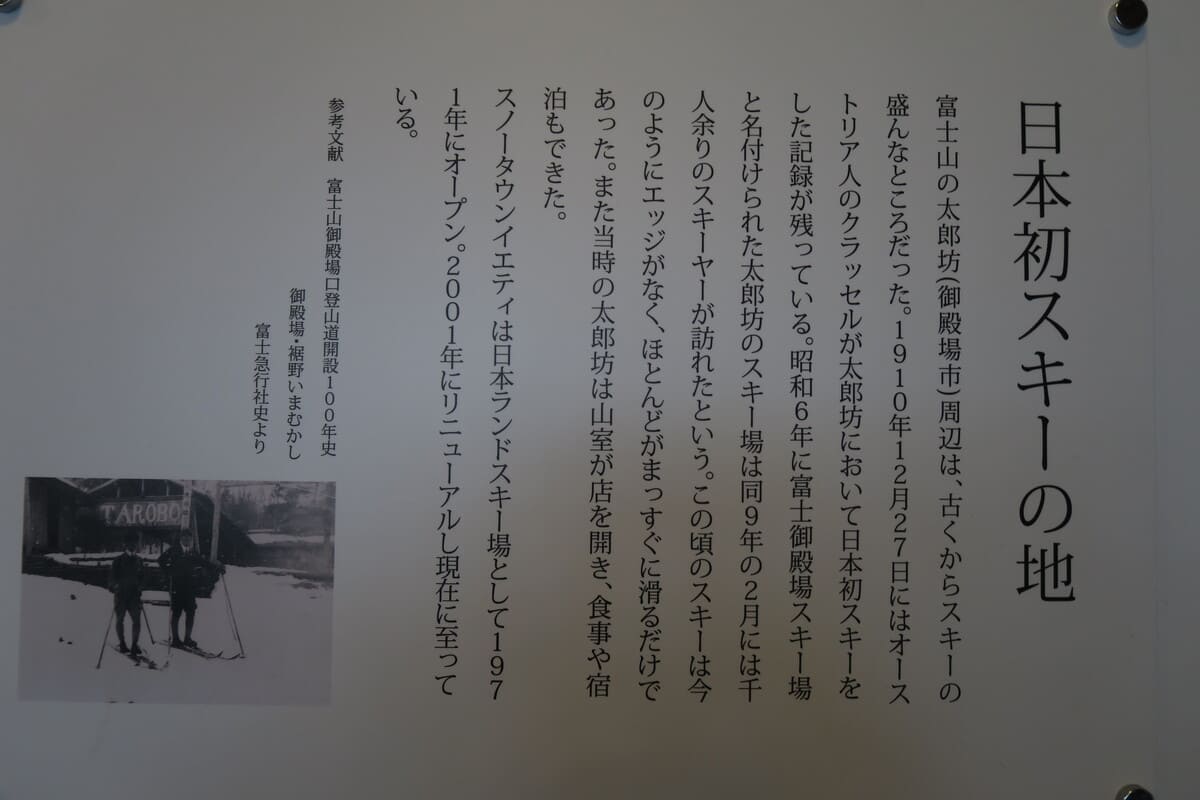 日本初スキーの地
富士山の太郎坊(御殿場市)周辺は、古くからスキーの
盛んなところだった。1910年12月27日にはオース
トリア人のクラッセルが太郎坊において日本初スキーを
した記録が残っている。昭和6年に富士御殿場スキー場
と名付けられた太郎坊のスキー場は同9年の2月には千
人余りのスキーヤーが訪れたという。この頃のスキーは今
のようにエッジがなく、ほとんどがまっすぐに滑るだけで
あった。また当時の太郎坊は山室が店を開き、食事や宿
泊もできた。
スノータウンイエティは日本ランドスキー場として197
1年にオープン。2001年にリニューアルし現在に至って
いる。
参考文献 富士山御殿場口登山道開設100年史
御殿場・裾野いまむかし
富士急行社史より
TAROBO